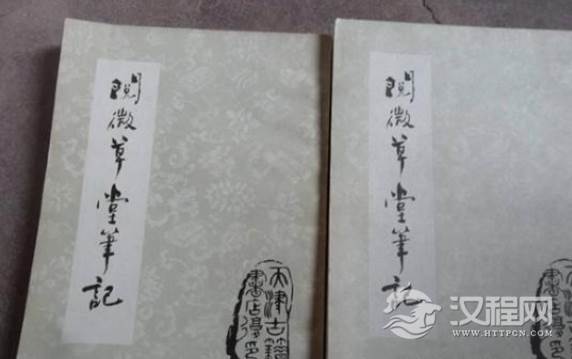 閱微草堂筆記
天津古籍
書店影印
閱微草堂筆記
汉程网
WWW.HTTPCN.COM